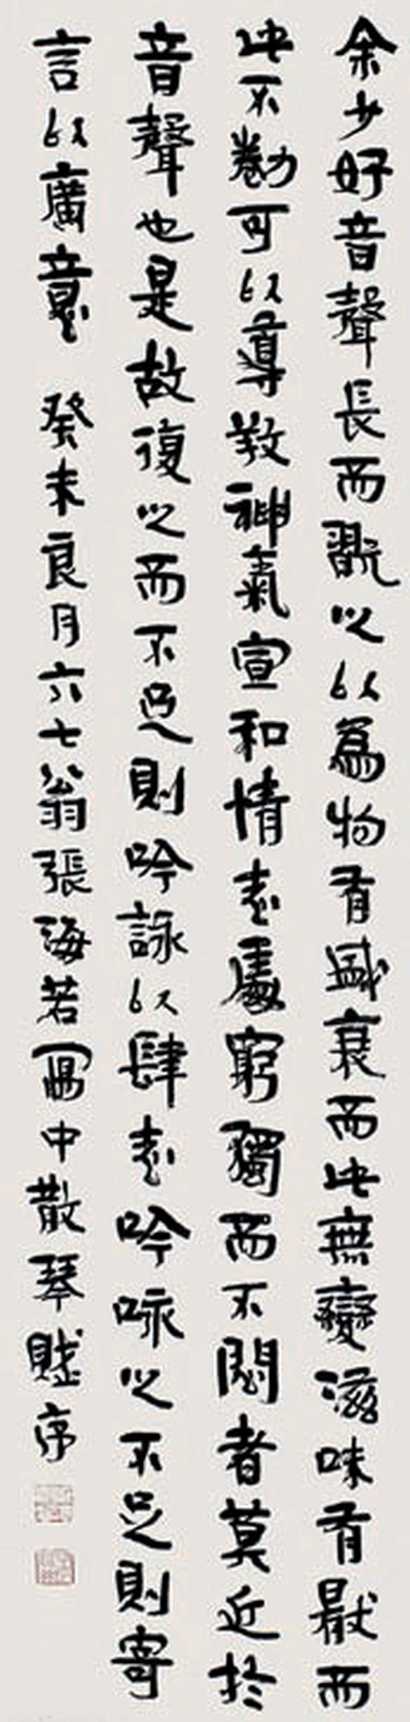 余少好音聲長而翫之以為物有盛衰而此無變滋味有猒而
此不勌可以導養神氣宣和情志處窮獨而不悶者莫近於
音聲也是故復之而不足則吟詠以肆志吟咏之不足則寄
言以廣意 癸未良月六七翁張海若寫中散琴賦序